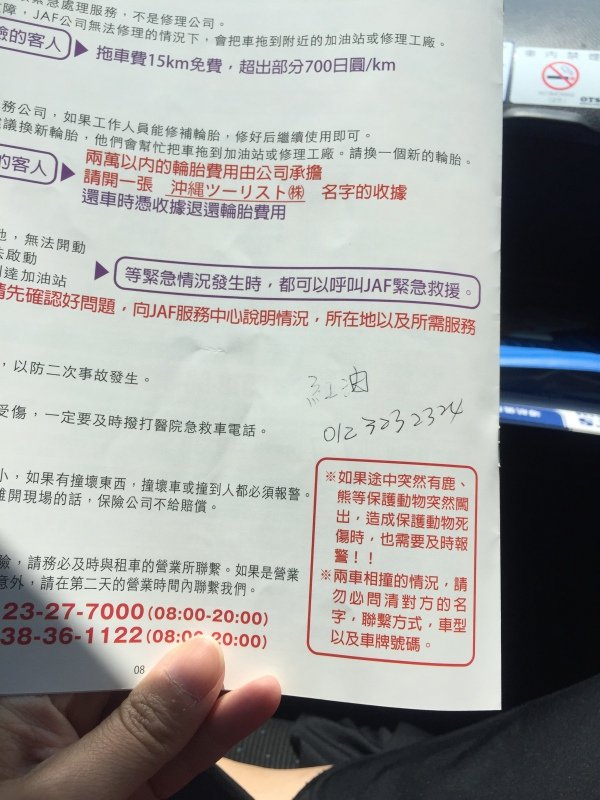 急處理服務，不是修理公司。
障，JAF公司無法修理的情況下，會把車拖到附近的加油站或修理工廠。
險的客人
拖車費15km免費，超出部分700日圓/km
務公司，如果工作人員能修補輪胎，修好后繼續使用即可。
議換新輪胎，他們會幫忙把車拖到加油站或修理工廠。請換一個新的輪胎。
的客人
兩萬以内的輪胎費用由公司承擔
請開一張 沖縄ツーリスト㈱ 名字的收據
還車時憑收據退還輪胎費用
地，無法開動
去啟動
到達加油站
等緊急情況發生時，都可以呼叫JAF緊急救援。
請先確認好問題，向JAF服務中心說明情況，所在地以及所需服務
，以防二次事故發生。
紅油
受傷，一定要及時撥打醫院急救車電話。
012 3232324
小，如果有撞壞東西，撞壞車或撞到人都必須報警。
離開現場的話，保險公司不給賠償。
※如果途中突然有鹿、
熊等保護動物突然闖
出，造成保護動物死
傷時，也需要及時報
警！！
※兩車相撞的情況，請
勿必問清對方的名
字，聯繫方式，車型
以及車牌號碼。
險，請務必及時與租車的營業所聯繫。如果是營業
意外，請在第二天的營業時間內聯繫我們。
23-27-7000(08:00-20:00)
38-36-1122(08:00-20:00)
08
車内禁煙
OTS